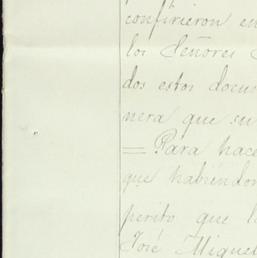 confirieron en
los Señores
dos estos docu
nera que su
= Para hace
que habiendo
perito que l
José Miguel